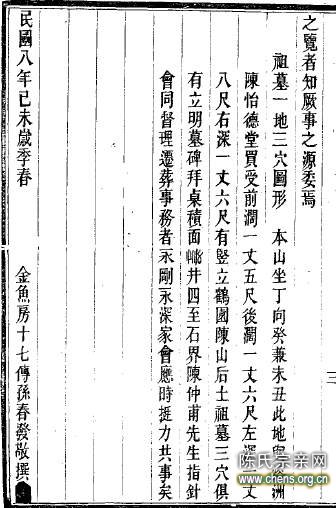 之覽者知厥事之源委焉
祖墓一地三穴圖形 本山坐丁向癸兼未丑此地與洲
陳怡德堂買受前濶一丈五尺後濶一丈六尺左深一丈
八尺右深一丈六尺有竪立鶴園陳山后土祖墓三穴俱
有立明墓碑拜桌積面井四至石界陳仲甫先生指針
會同督理遷葬事務者永剛永深家會應時挺力共事矣
民國八年己未歲季春 金魚房十七傳孫春發敬撰
三
陈氏宗亲网
www.chens.org.cn